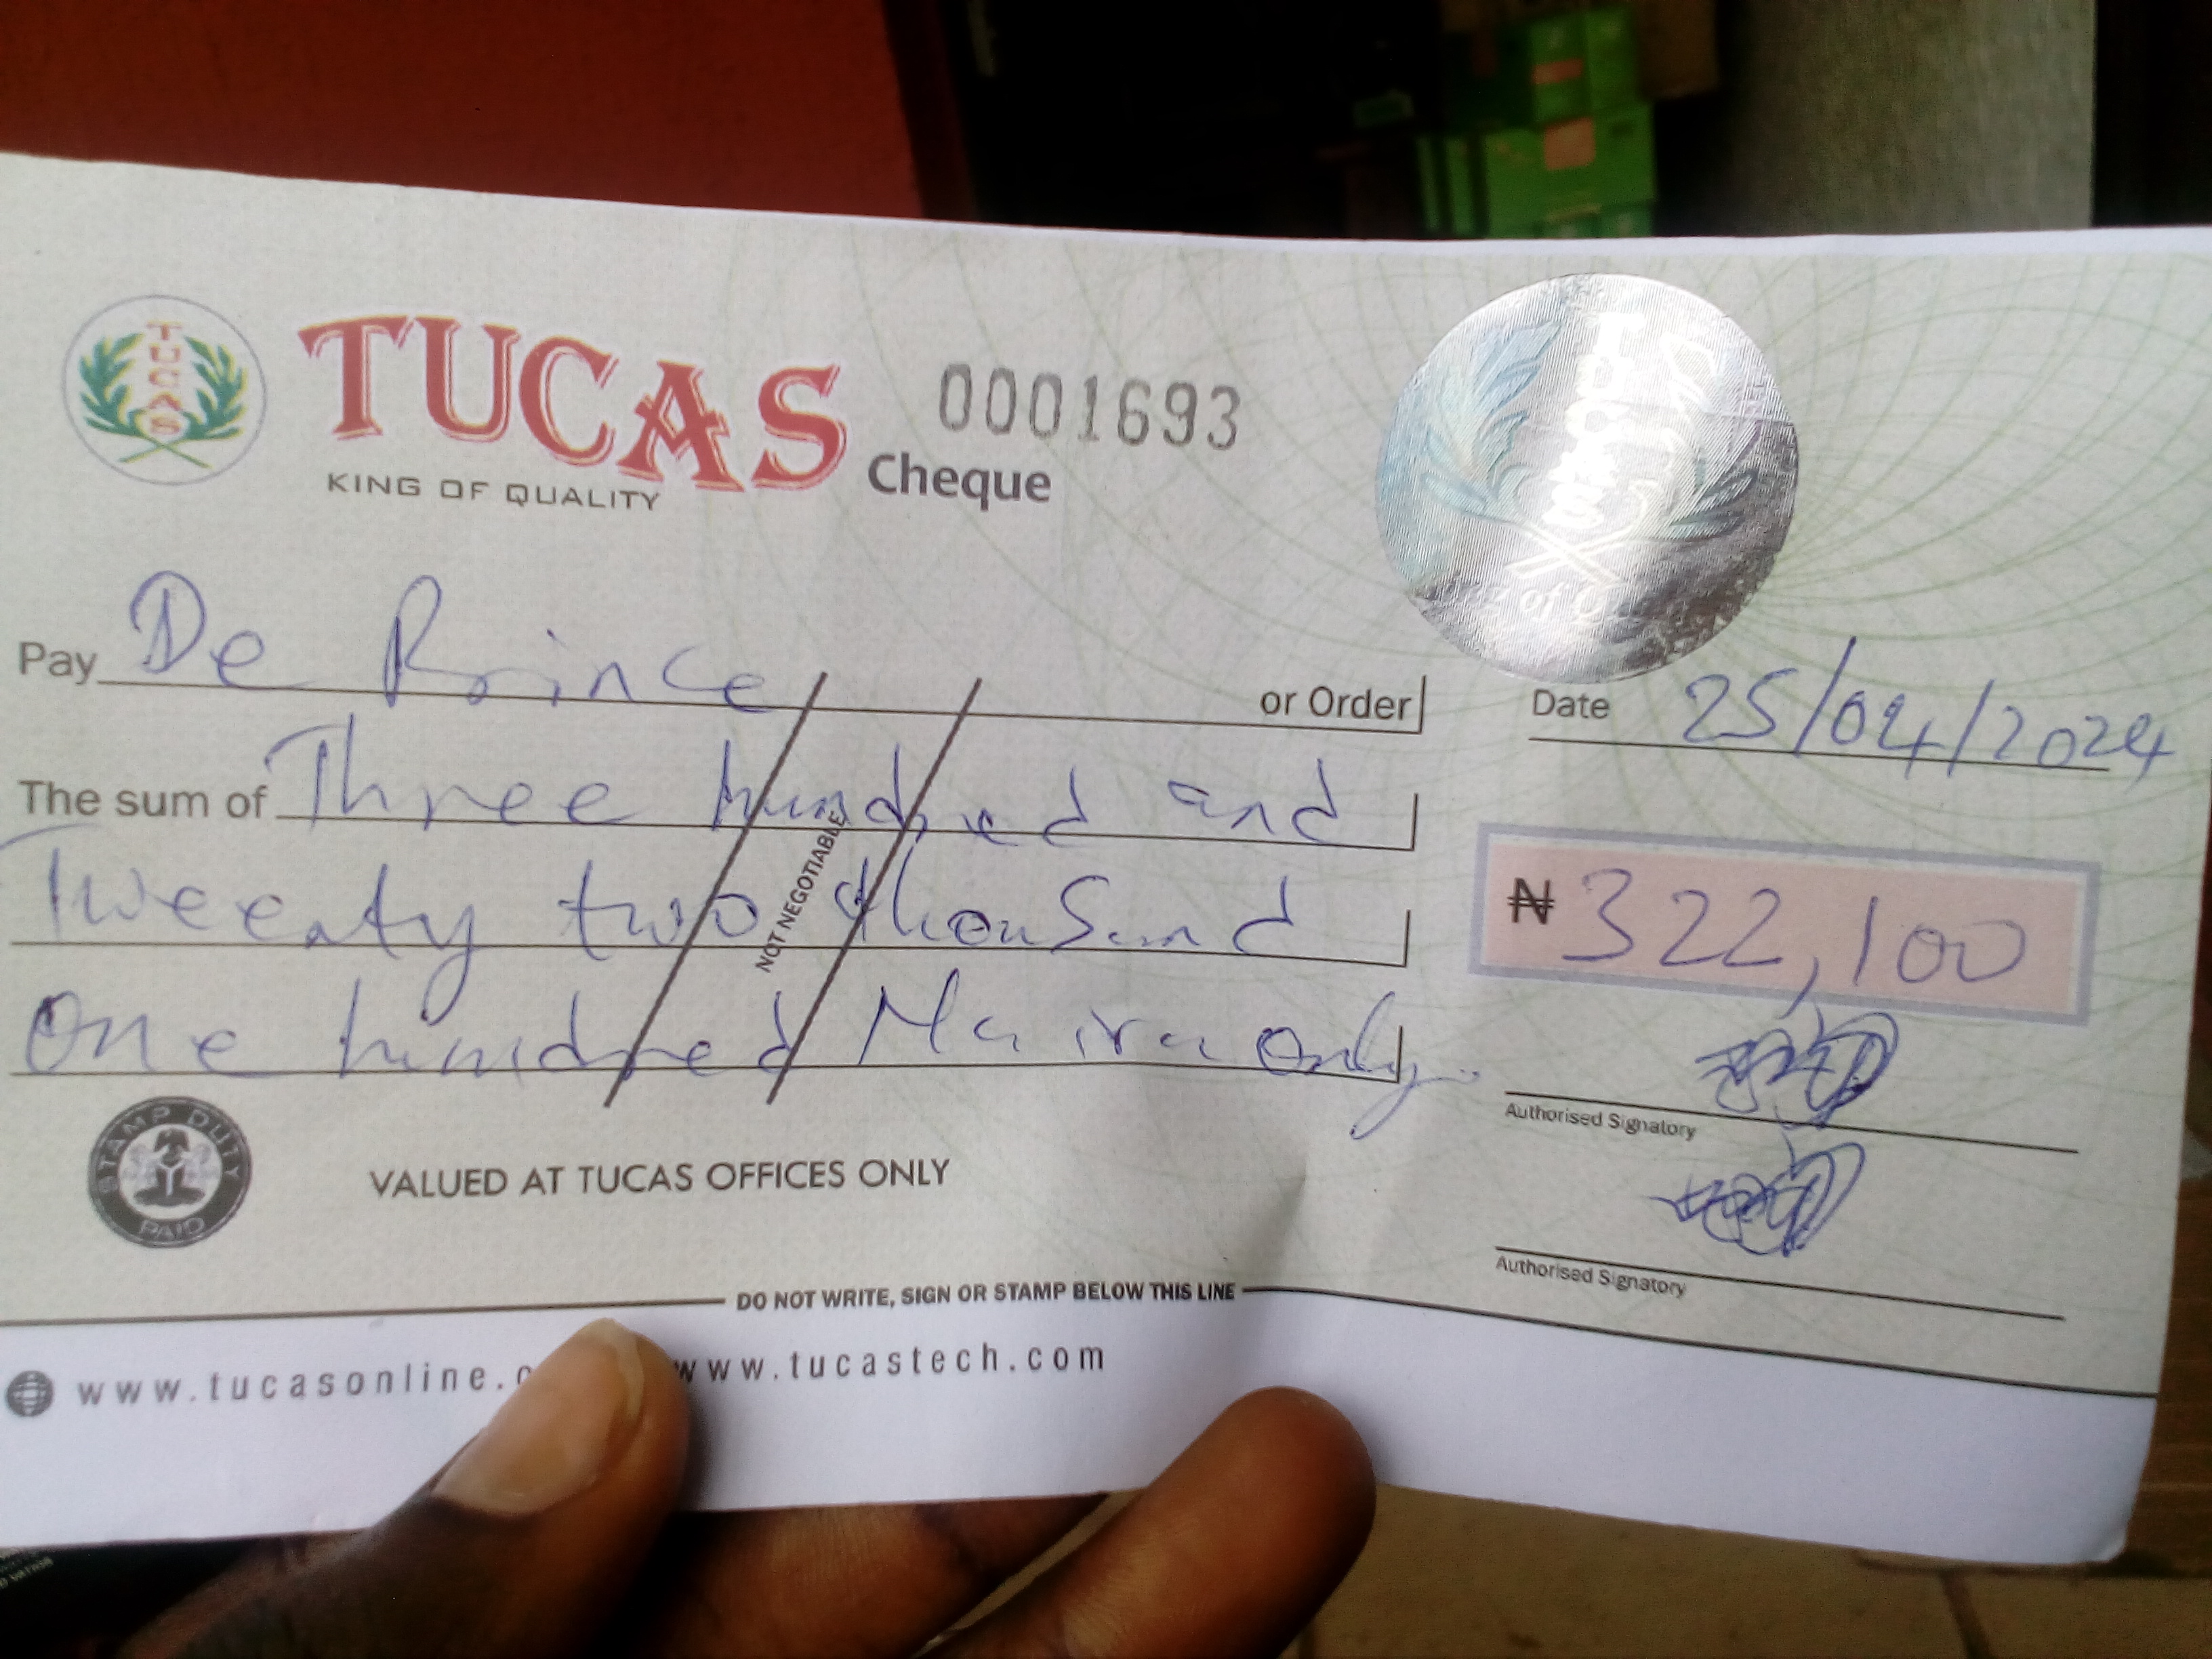 TUCAS
TUCAS
KING OF QUALITY
Cheque
0001693
TUCAS
of
Pay De Prince or Order
Date 25/04/2024
The sum of Three hundred and
Tweenty two thousand
₦ 322,100
One hundred Naira only.
NOT NEGOTIABLE
Authorised Signatory
STAMP DUTY
PAID
VALUED AT TUCAS OFFICES ONLY
Authorised Signatory
DO NOT WRITE, SIGN OR STAMP BELOW THIS LINE
www.tucasonline. www.tucastech.com